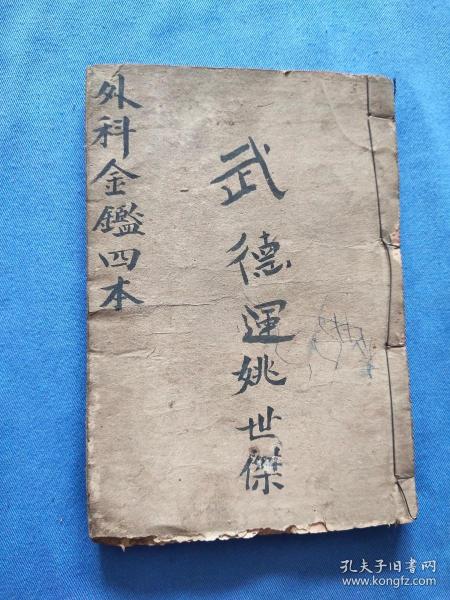 外科金鑑四本
武德運姚世傑
孔夫子旧书网
www.kongfz.com